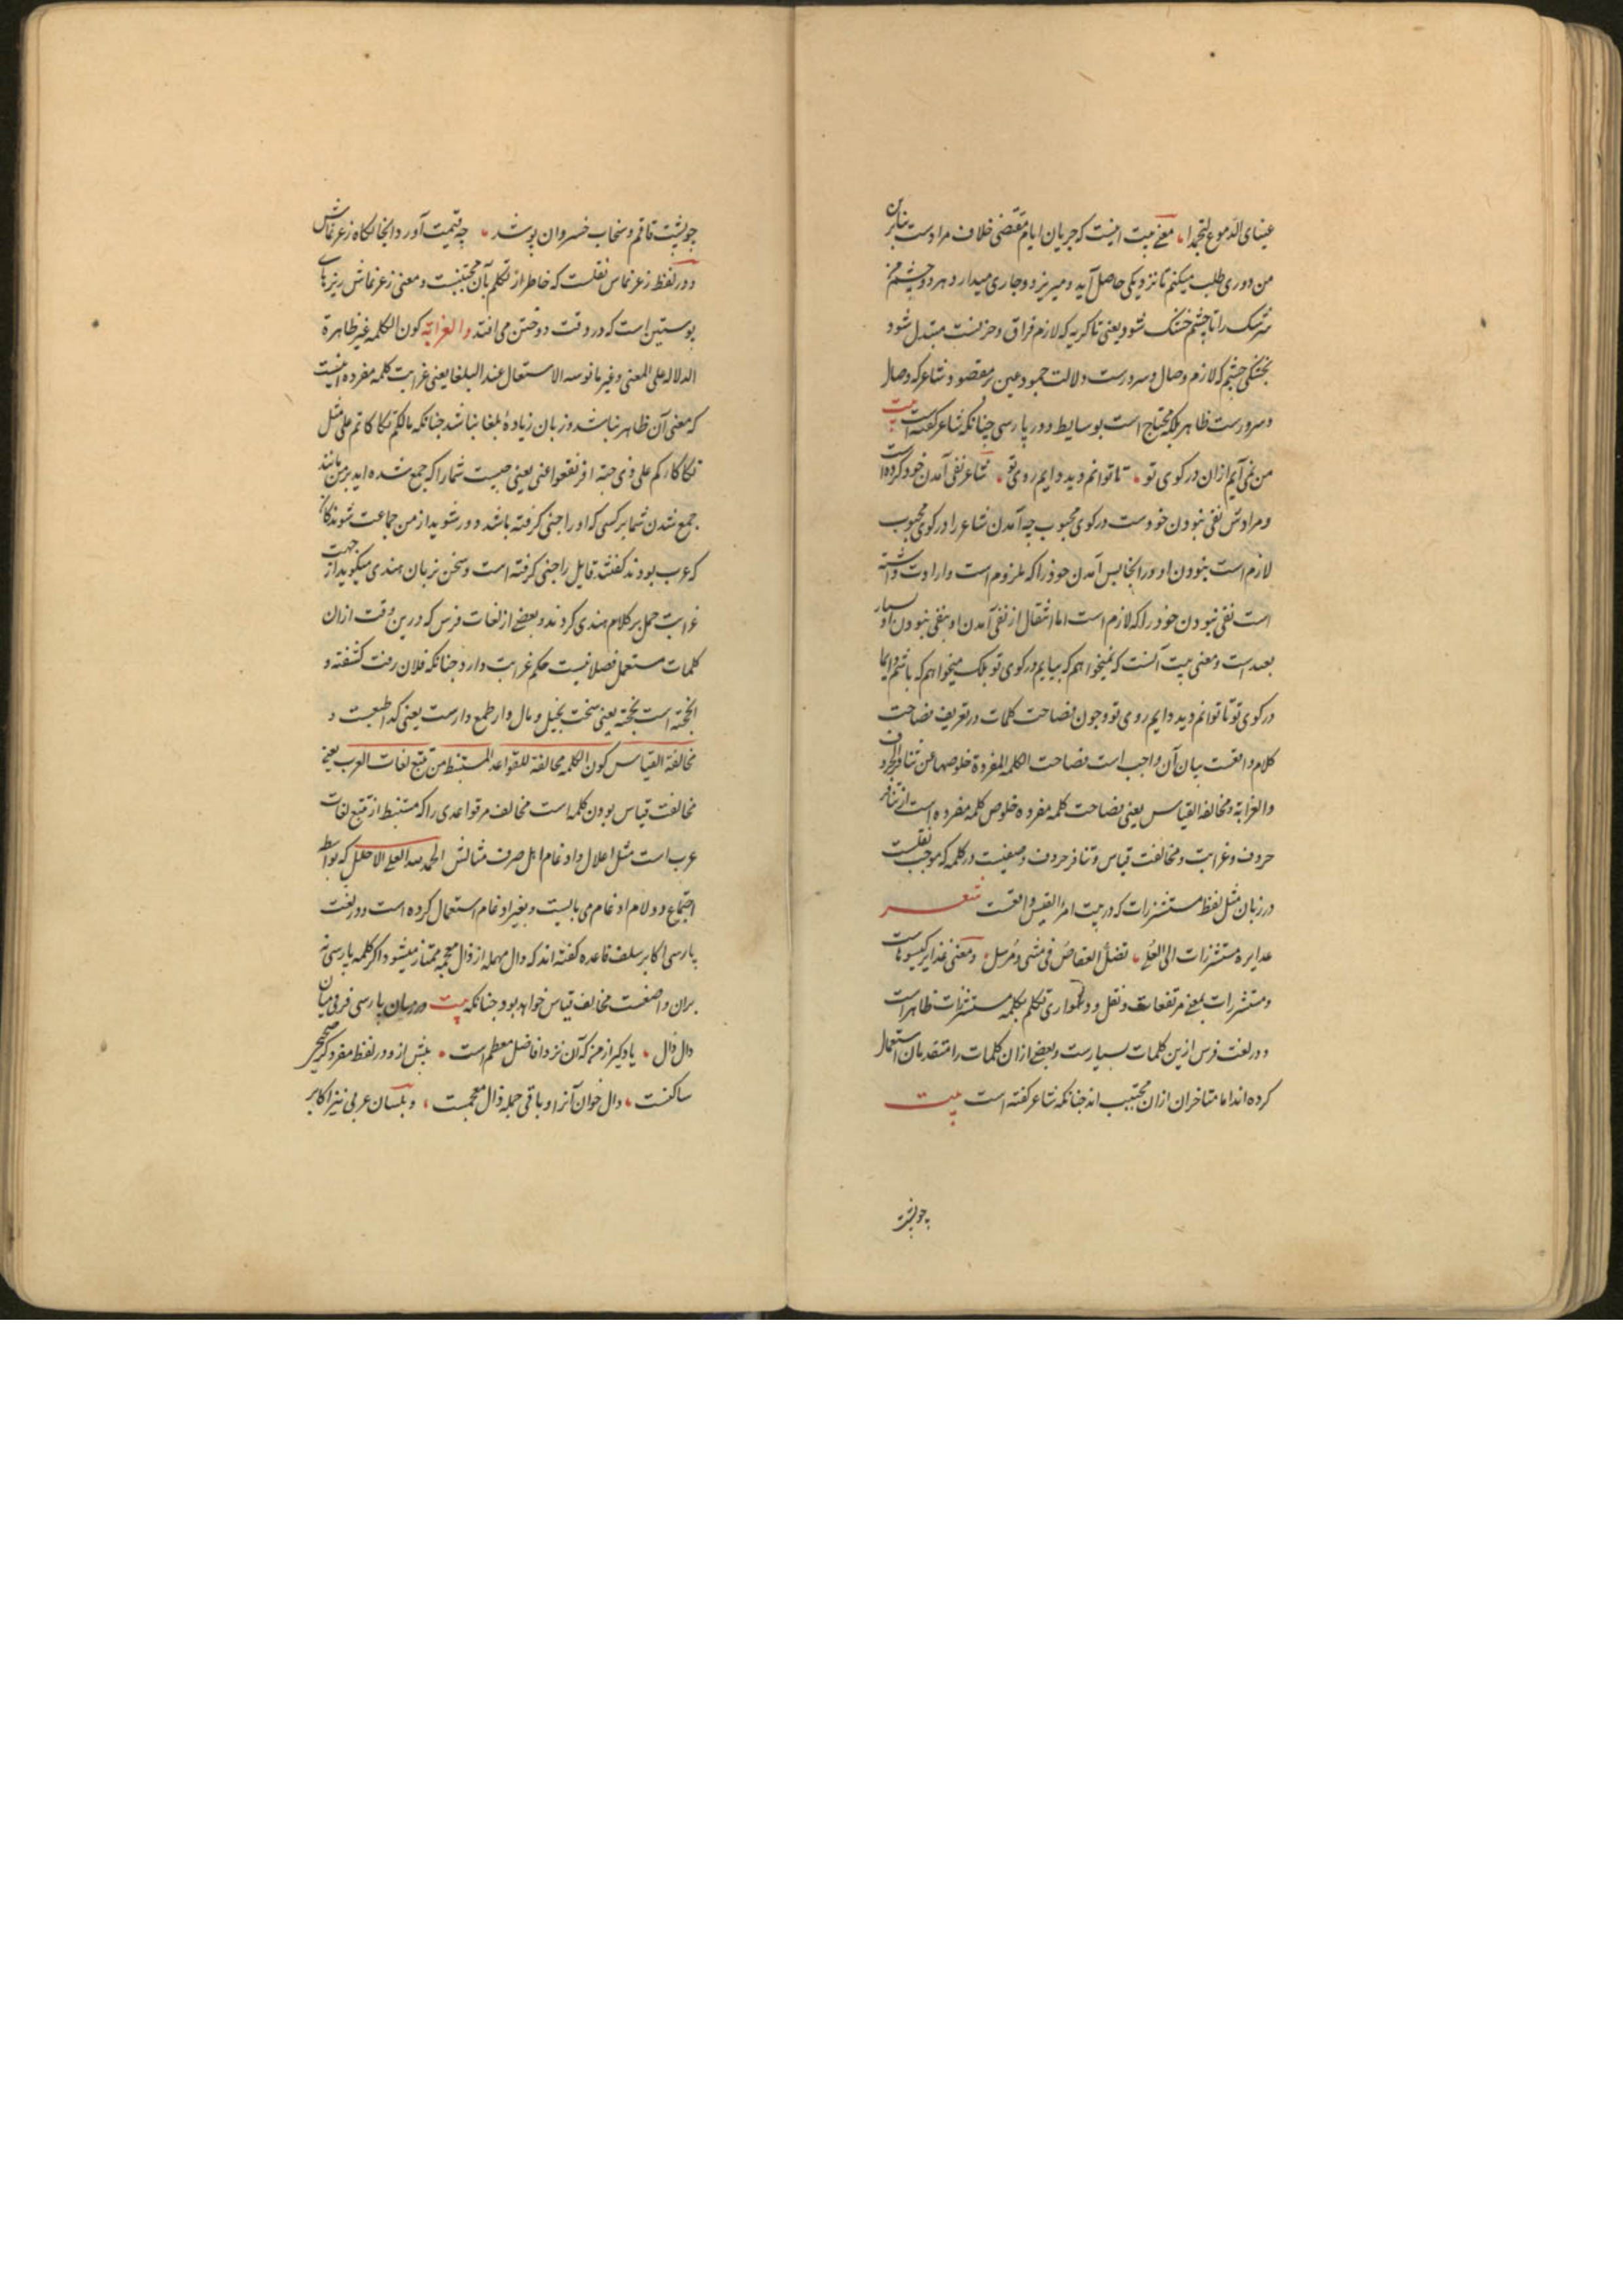 عینای الدموع لتجمدا معنی بیت اینست که جریان ایام مقتضی خلاف مرادست بنابرین
من دوری طلب میکنم تا نزدیکی حاصل آید و میریزد و جاری میدارد هر دو چشم من
سرشک را تا چشم خشک شود یعنی تا کریه که لازم فراق و حزنست مبتدل شود
بخشکی چشم که لازم وصال و سرورست و دلالت جمود عین بر مقصود شاعر که وصال
و سرورست ظاهر بلکه محتاج است بوسایط و در پارسی چنانکه شاعر کفته است بیت
من نمی آیم ازان در کوی تو تا توانم دید دایم روی تو شاعر نفی آمدن خود کرده است
و مرادش نفی نبودن خودست در کوی محبوب چه آمدن شاعر را در کوی محبوب
لازم است نبودن او در انجا پس آمدن خود را که ملزوم است و ارادت داشته
است نفی نبودن خود را که لازم است اما انتقال از نفی آمدن او بنفی نبودن او بسیار
بعید است و معنی بیت آنست که نمیخواهم که بیایم در کوی تو بلک میخواهم که باشم دایما
در کوی تو تا توانم دید دایم روی تو و چون فصاحت کلمات در تعریف فصاحت
کلام واقعست بیان آن واجب است فصاحت الکلمه المفردة خلوصها عن تنافر الحروف
والغرابة و مخالفه القیاس یعنی فصاحت کلمه مفرده خلوص کلمه مفرده است از تنافر
حروف و غرابت و مخالفت قیاس و تنافر حروف وصفیست در کلمه که موجب ثقلست
در زبان مثل لفظ مستشزرات که در بیت امرا القیس واقعست شعر
غدایره مستشزرات الی العلی تضل العقاص فی مثنی و مرسل و معنی غدایر کیسوهاست
و مستشزرات بمعنی مرتفعات و ثقل و دشواری تکلم بکلمه مستشزرات ظاهر است
و در لغت فرس ازین کلمات بسیارست و بعضی ازان کلمات را متقدمان استعمال
کرده اند اما متاخران ازان مجتنب اند چنانکه شاعر کفته است بیت
چو پشت
چو پشت قاقم و سنجاب خسروان پوشند چه قیمت آورد انجایکاه زغرماش
و در لفظ زغرماش ثقلست که خاطر از تکلم بآن مجتنبست و معنی زغرماش ریزهای
پوستین است که در وقت دوختن می افتد والغرابة کون الکلمه غیر ظاهرة
الدلاله علی المعنی و غیر مانوسه الاستعمال عند البلغا یعنی غرابت کلمه مفرده اینست
که معنی آن ظاهر نباشد و زبان زیادهٔ بلغا نباشد چنانکه مالکم تکاکاتم علی مثل
تکاکاءکم علی ذی جنة افرنقعوا عنی یعنی چیست شما را که جمع شده اید بر من مانند
جمع شدن شما بر کسی که او را جنی کرفته باشد دور شوید از من جماعت شوندکان
که عرب بودند کفتند قایل را جنی کرفته است و سخن بزبان هندی میکوید از جهت
غرابت حمل بر کلام هندی کردند و بعضی از لغات فرس که درین وقت ازان
کلمات مستعمل فصلا نیست حکم غرابت دارد چنانکه فلان رفت کشفته و
است یعنی سخت بخیل و مال دار طمع دارست یعنی کداطبعست و
مخالفة القیاس کون الکلمه مخالفة للقواعد المستنبط من تتبع لغات العرب یعنی
مخالفت قیاس بودن کلمه است مخالف مر قواعدی را که مستنبط از تتبع لغات
عرب است مثل اعلال و ادغام اهل صرف مثالش الحمد لله العلی الاجلل که بواسطه
اجتماع دو لام ادغام می بایست و بغیر ادغام استعمال کرده است و در لغت
پارسی اکابر سلف قاعده کفته اند که دال مهمله از ذال معجمه ممتاز میشود اکر کلمه پارسی نه
بران واضعست مخالف قیاس خواهد بود چنانکه بیت در زبان پارسی فرق میان
دال ذال یاد کیر از من که آن نزد افاضل معظم است پیش ازو در لفظ مفرد کر صحیح
ساکنست دال خوان آنرا و باقی جمله ذال معجمست و بلسان عربی نیز اکابر